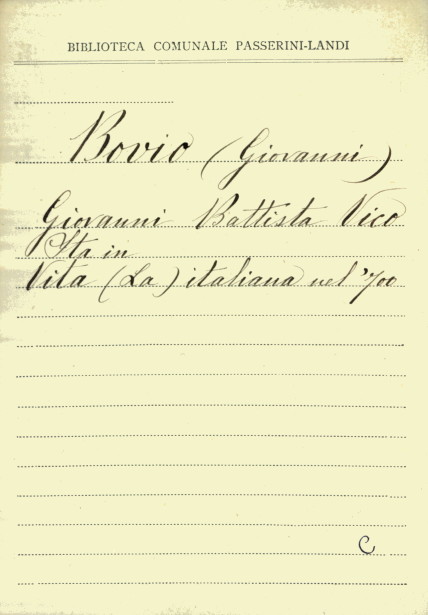 BIBLIOTECA COMUNALE PASSERINI-LANDI
Bovio (Giovanni)
Giovanni Battista Vico
Sta in
Vita (La) italiana nel '700
C